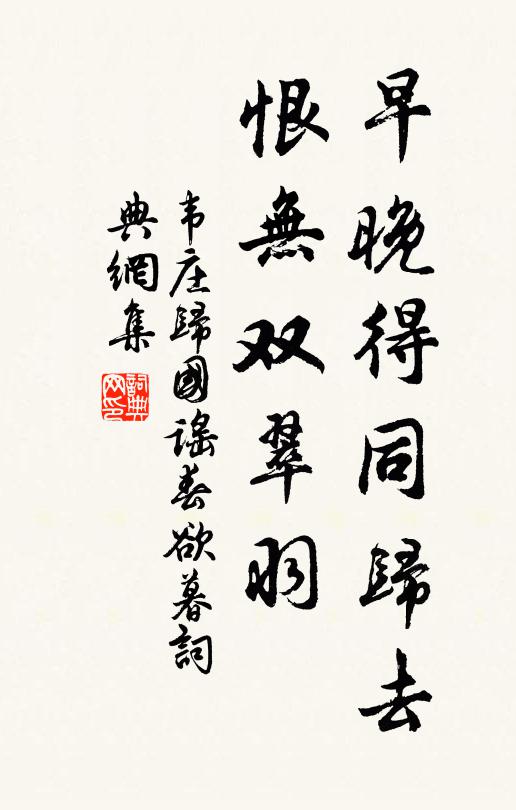 早晚得同歸去
恨無双翠羽
韦庄歸國謠春欲暮詞
典網集
詞典
网印